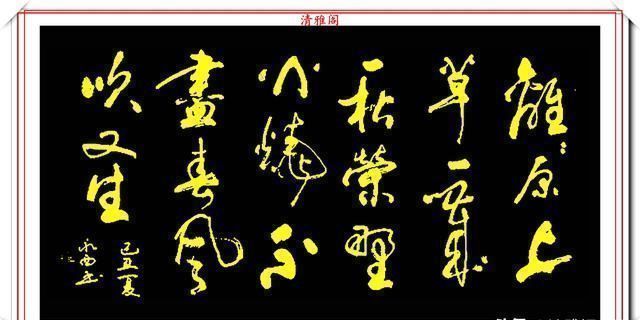 清雅阁
離〻原上
草一歲
一枯榮野
火燒不
盡春風
吹又生
己丑夏